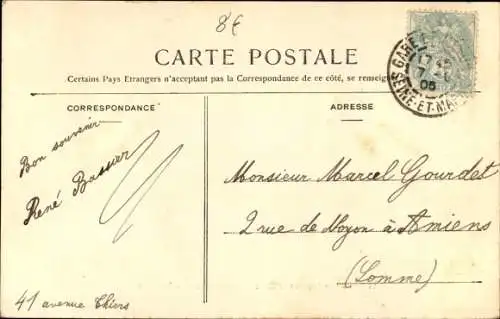 8€
CARTE POSTALE
Certains Pays Etrangers n'acceptant pas la Correspondance de ce côté, se renseigne
CORRESPONDANCE
ADRESSE
GARE
17
7
05
SEINE-ET-MA
Bon souvenir
René
Monsieur Marcel Gourdet
2 rue de Noyon à Amiens
(Somme)
41 avenue Thiers